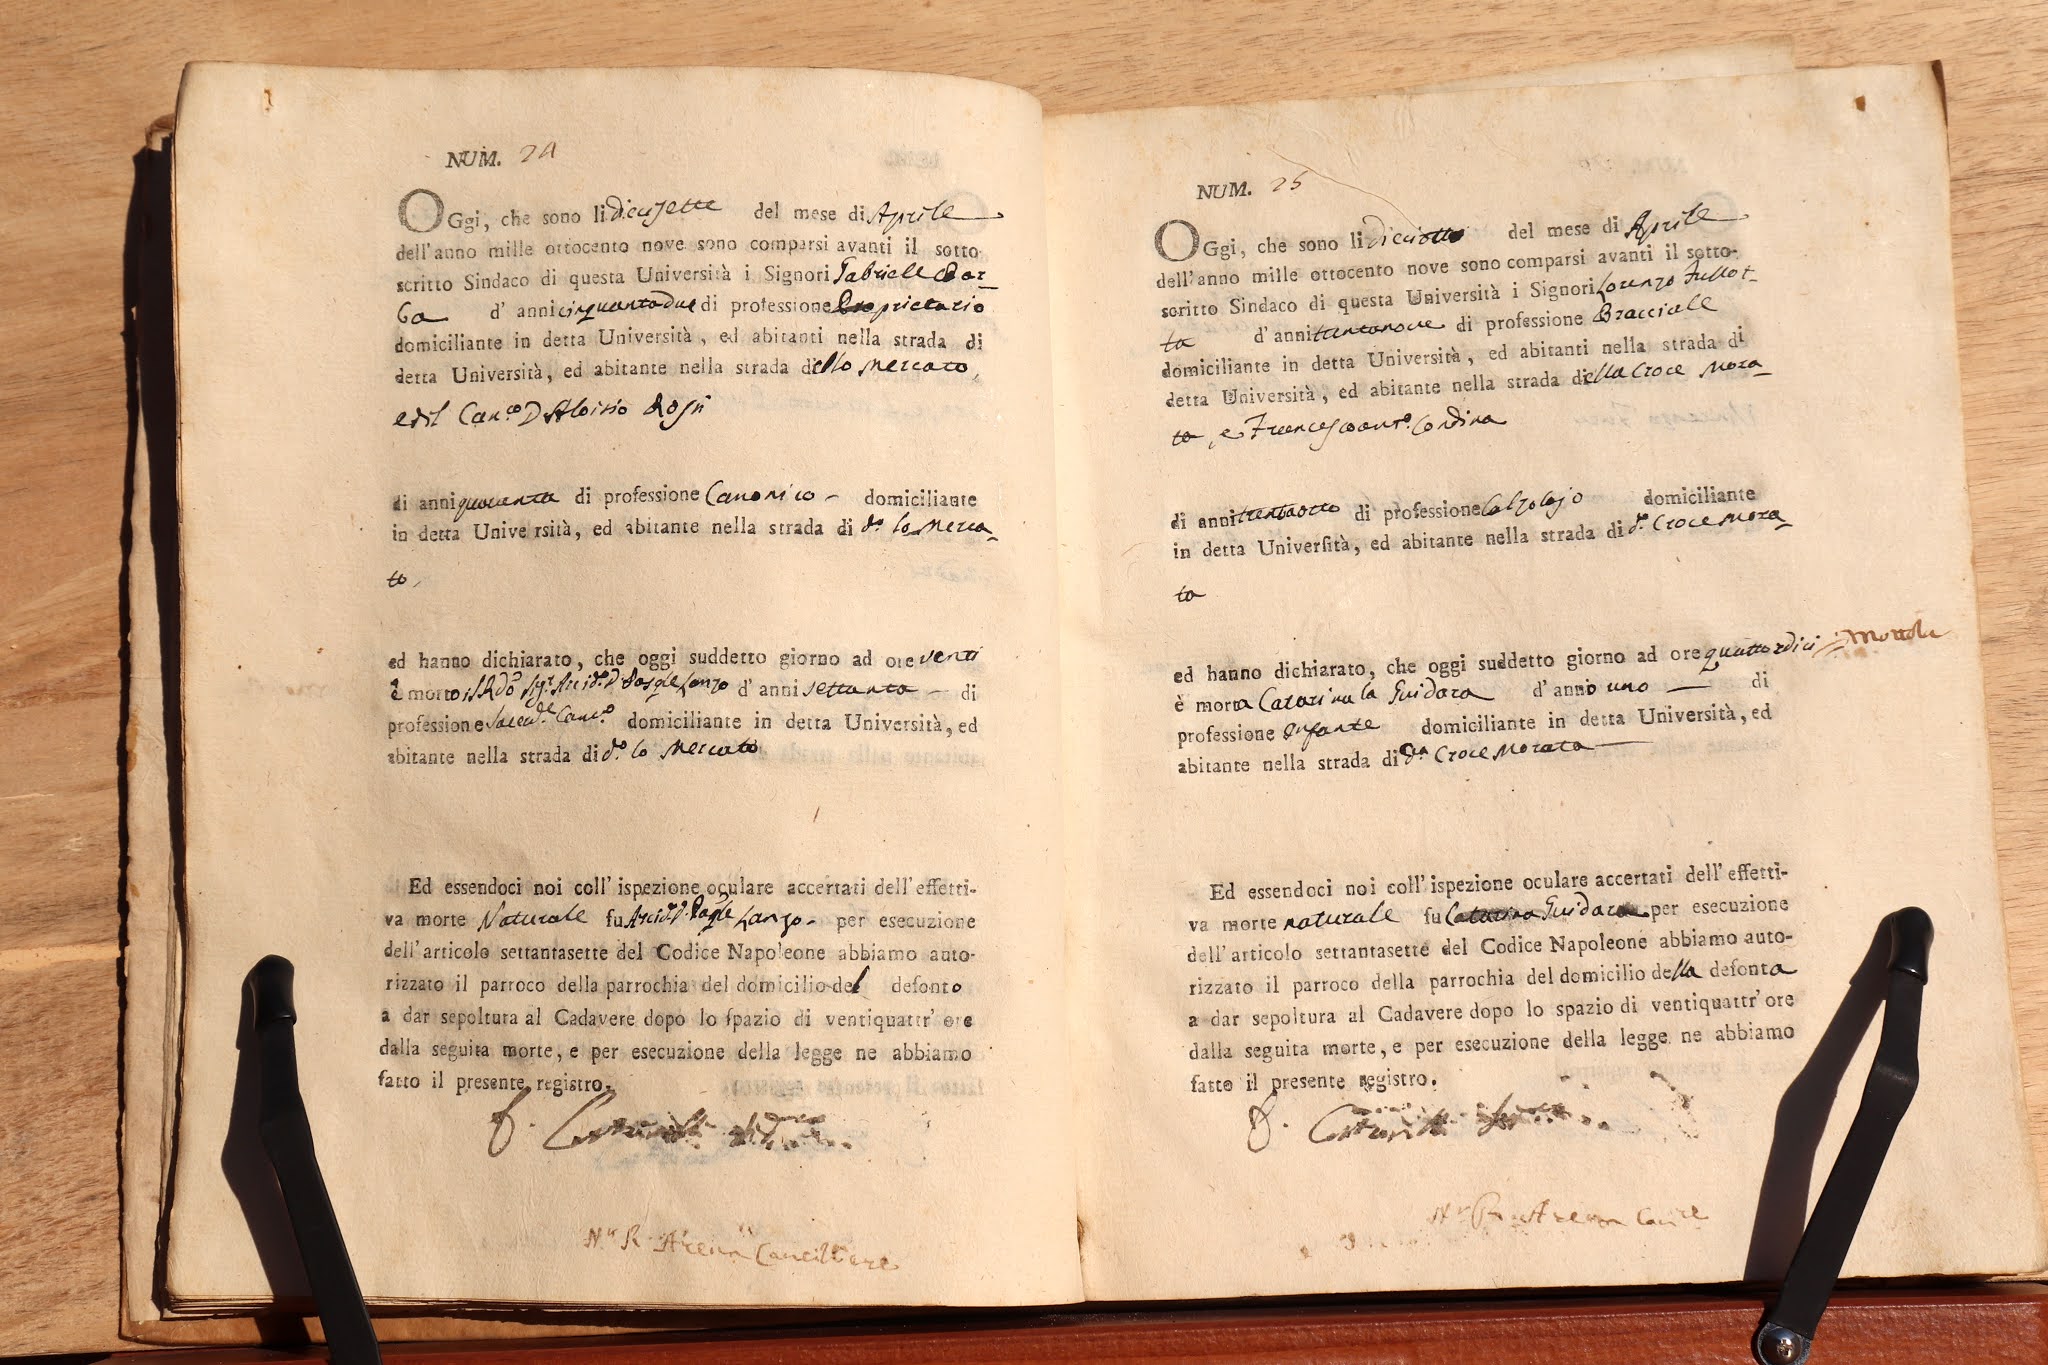 NUM. 24
OGgi, che sono li diecisette del mese di Aprile
dell'anno mille ottocento nove sono comparsi avanti il sotto-
scritto Sindaco di questa Università i Signori Gabriele Bar-
ba d'anni cinquantadue di professione Proprietario
domiciliante in detta Università, ed abitanti nella strada di
detta Università, ed abitante nella strada dello Mercato,
ed il Can.co D. Aloisio
di anni quaranta di professione Canonico domiciliante
in detta Università, ed abitante nella strada di d.o lo Merca-
to,
ed hanno dichiarato, che oggi suddetto giorno ad ore venti
è morto il R.do Sig.r Arcid.o D. Pasq.le Lanzo d'anni settanta di
professione Sacerd.e Can.co domiciliante in detta Università, ed
abitante nella strada di d.o lo Mercato
Ed essendoci noi coll'ispezione oculare accertati dell'effetti-
va morte Naturale fu Arcid.o D. Pasq.le Lanzo per esecuzione
dell'articolo settantasette del Codice Napoleone abbiamo auto-
rizzato il parroco della parrochia del domicilio del defonto
a dar sepoltura al Cadavere dopo lo spazio di ventiquattr'ore
dalla seguita morte, e per esecuzione della legge ne abbiamo
fatto il presente registro.
Arena Cancelliere
NUM. 25
OGgi, che sono li dieciotto del mese di Aprile
dell'anno mille ottocento nove sono comparsi avanti il sotto-
scritto Sindaco di questa Università i Signori Lorenzo Fullot-
ta d'anni trentanove di professione Bracciale
domiciliante in detta Università, ed abitanti nella strada di
detta Università, ed abitante nella strada della Croce Mora-
ta, e Francescoant.o Condina
di anni trentaotto di professione Calzolajo domiciliante
in detta Università, ed abitante nella strada di d.a Croce Mora-
ta
ed hanno dichiarato, che oggi suddetto giorno ad ore quattordici
è morta Catarina la Guidara d'anno uno di
professione Infante domiciliante in detta Università, ed
abitante nella strada di d.a Croce Morata
Ed essendoci noi coll'ispezione oculare accertati dell'effetti-
va morte naturale fu Catarina Guidara per esecuzione
dell'articolo settantasette del Codice Napoleone abbiamo auto-
rizzato il parroco della parrochia del domicilio della defonta
a dar sepoltura al Cadavere dopo lo spazio di ventiquattr'ore
dalla seguita morte, e per esecuzione della legge ne abbiamo
fatto il presente registro.
Arena